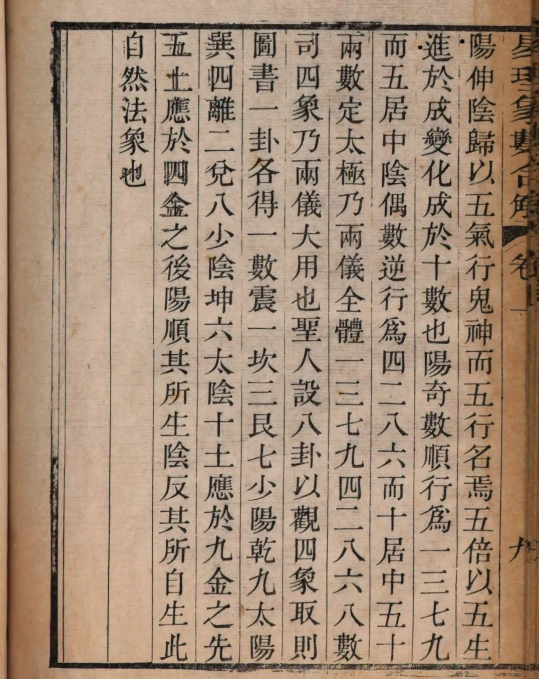 易理象數合解 卷
陽伸陰歸以五氣行鬼神而五行名焉五倍以五生
進於成變化成於十數也陽奇數順行爲一三七九
而五居中陰偶數逆行爲四二八六而十居中五十
兩數定太極乃兩儀全體一三七九四二八六八數
司四象乃兩儀大用也聖人設八卦以觀四象取則
圖書一卦各得一數震一坎三艮七少陽乾九太陽
巽四離二兌八少陰坤六太陰十土應於九金之先
五土應於四金之後陽順其所生陰反其所自生此
自然法象也